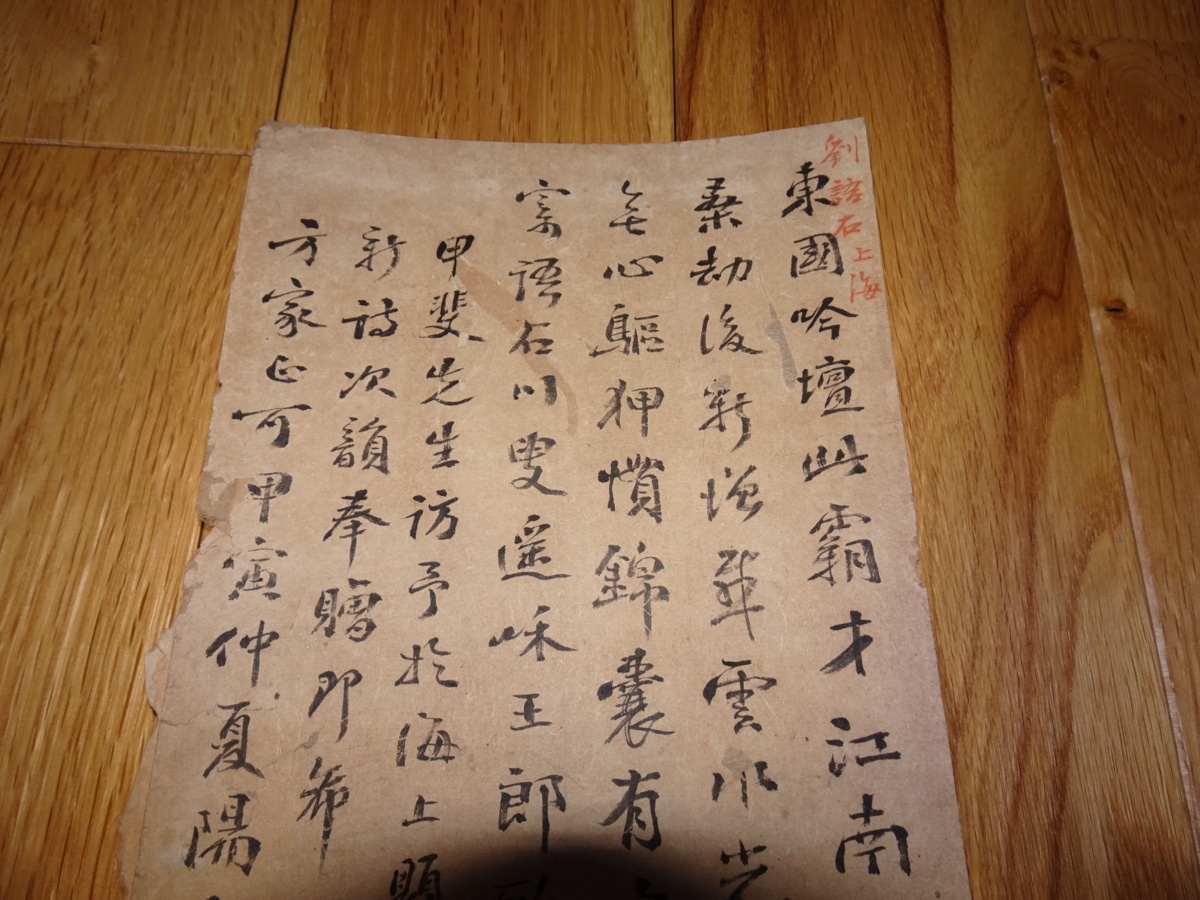 劉語石上海
東國吟壇此霸才江南
桑劫後新增華雲水光
無心驅狎慣錦囊有
寄語石川叟遥王郎
甲斐先生訪予於海上賜
新詩次韻奉贈即希
方家正可甲寅仲夏陽